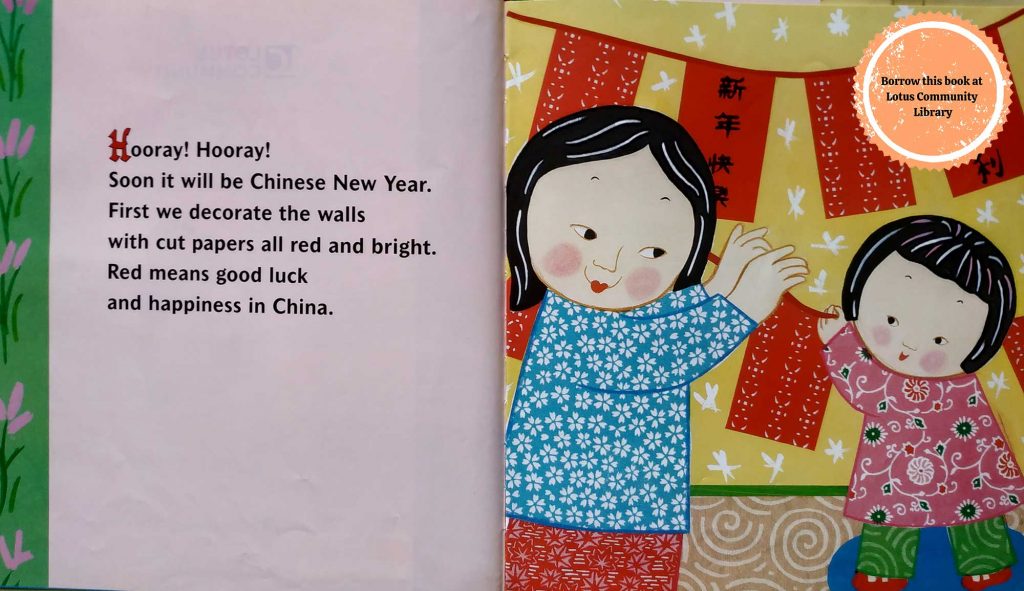 Hooray! Hooray!
Soon it will be Chinese New Year.
First we decorate the walls
with cut papers all red and bright.
Red means good luck
and happiness in China.
新年快
利
Borrow this book at
Lotus Community
Library